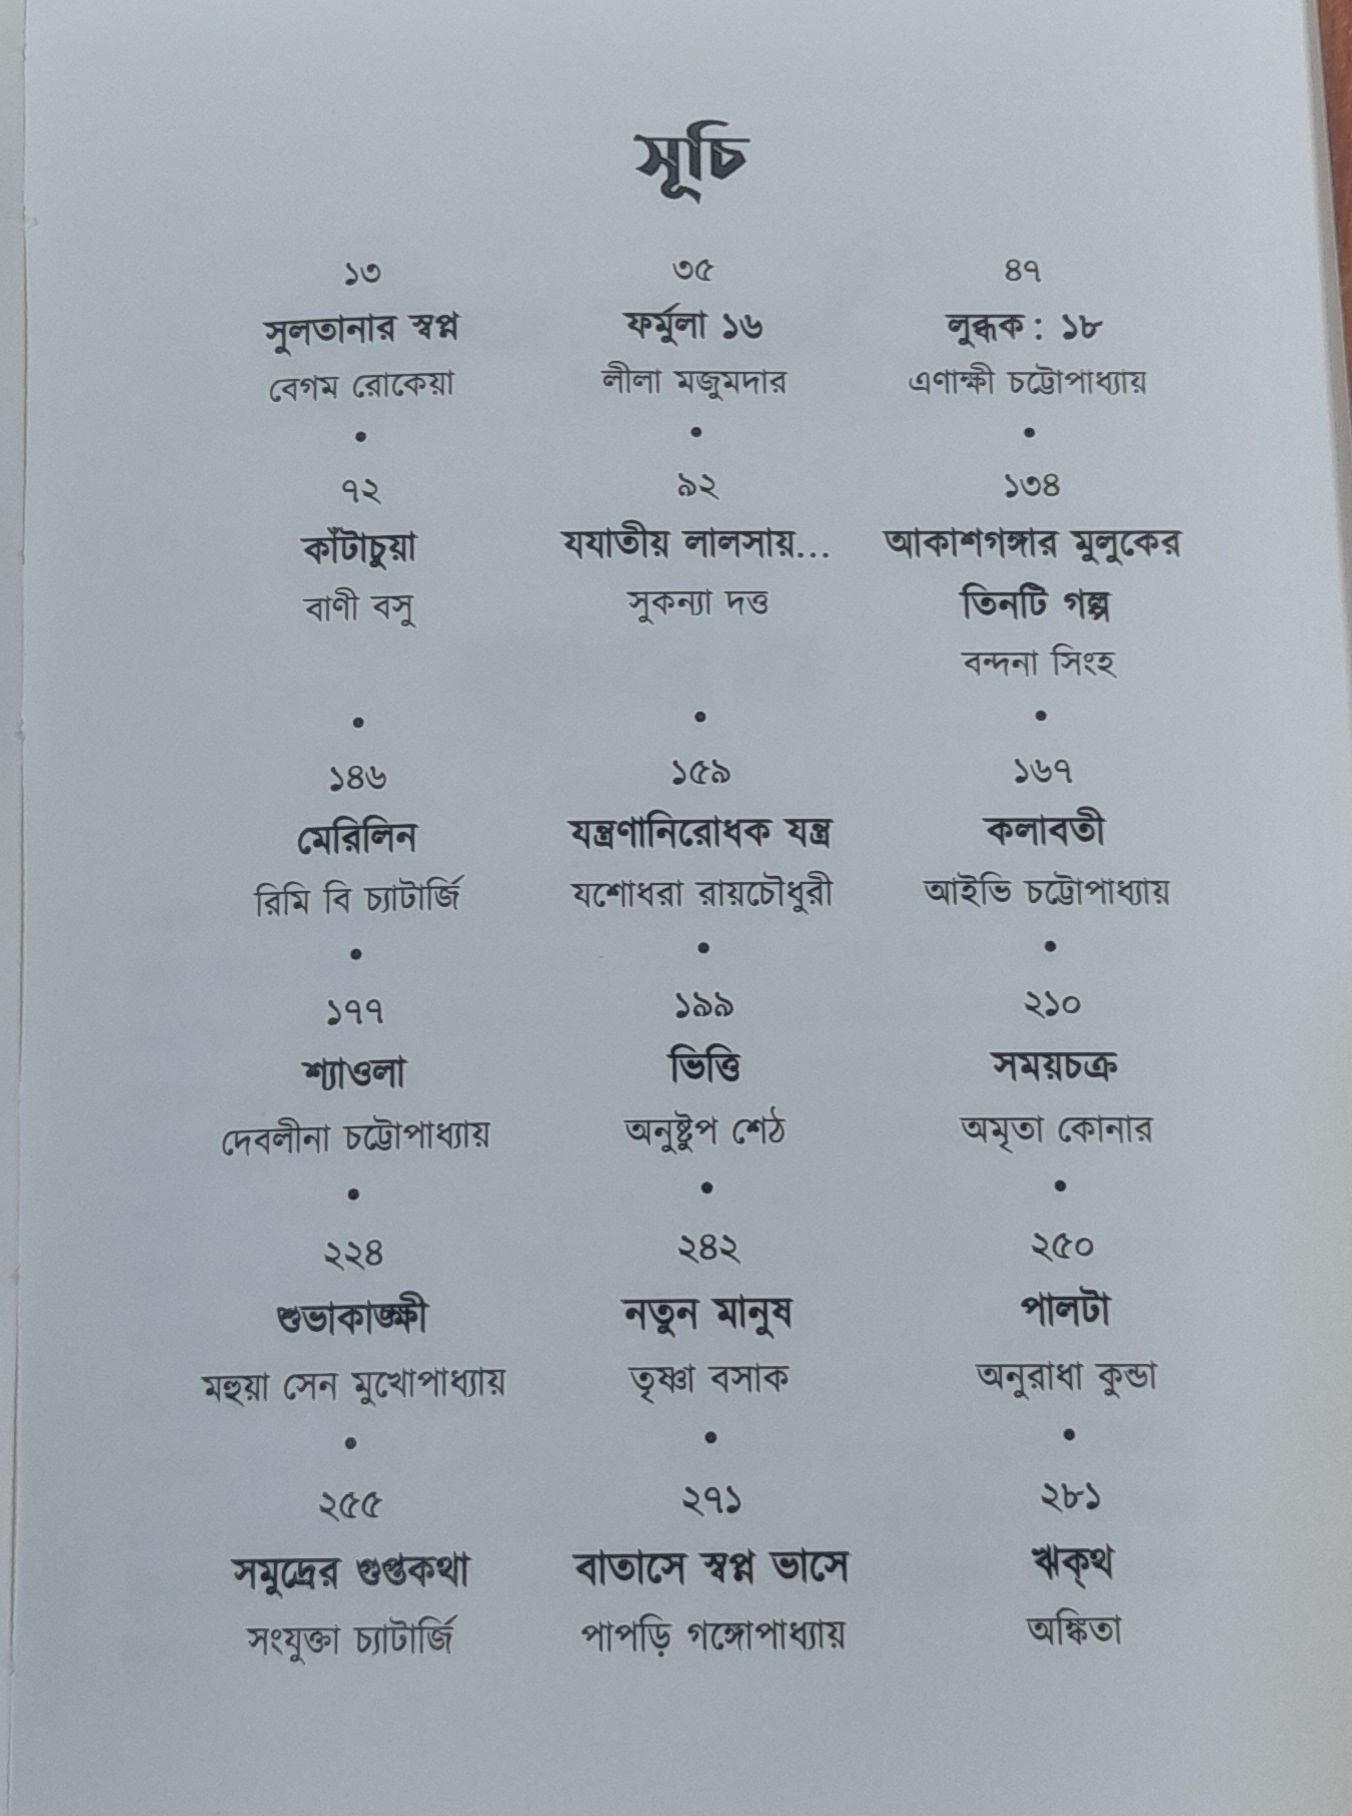 সূচি
১৩
সুলতানার স্বপ্ন
বেগম রোকেয়া
•
৩৫
ফর্মুলা ১৬
লীলা মজুমদার
•
৪৭
লুব্ধক : ১৮
এণাক্ষী চট্টোপাধ্যায়
•
৭২
কাঁটাচুয়া
বাণী বসু
•
৯২
যযাতীয় লালসায়...
সুকন্যা দত্ত
•
১৩৪
আকাশগঙ্গার মুলুকের
তিনটি গল্প
বন্দনা সিংহ
•
১৪৬
মেরিলিন
রিমি বি চ্যাটার্জি
•
১৫৯
যন্ত্রণানিরোধক যন্ত্র
যশোধরা রায়চৌধুরী
•
১৬৭
কলাবতী
আইভি চট্টোপাধ্যায়
•
১৭৭
শ্যাওলা
দেবলীনা চট্টোপাধ্যায়
•
১৯৯
ভিত্তি
অনুষ্টুপ শেঠ
•
২১০
সময়চক্র
অমৃতা কোনার
•
২২৪
শুভাকাঙ্ক্ষী
মহুয়া সেন মুখোপাধ্যায়
•
২৪২
নতুন মানুষ
তৃষ্ণা বসাক
•
২৫০
পালটা
অনুরাধা কুন্ডা
•
২৫৫
সমুদ্রের গুপ্তকথা
সংযুক্তা চ্যাটার্জি
২৭১
বাতাসে স্বপ্ন ভাসে
পাপড়ি গঙ্গোপাধ্যায়
২৮১
ঋক্‌থ
অঙ্কিতা